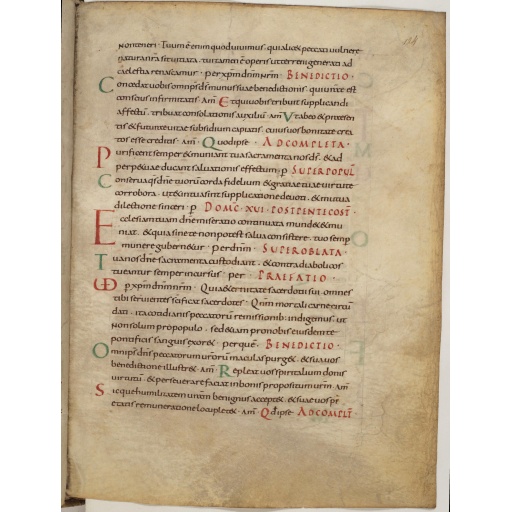 non teneri · Tuum ē enim quod uiuimus · qui alice& peccati uulnere
natura nra sit uitiata · tui tamen ē operis ut terreni generati ad
caelestia renascamur · per xpm dnm nrm · BENEDICTIO ·
Concedat uobis omnips ds munus suae benedictionis · qui ur̄ae est
conscius infirmitatis · Am̄ Et qui uobis tribuit supplicandi
affectū · tribuat consolationis auxiliū · am̄ Vt ab eo & praesen
tis & futurae uitae subsidium capiatis · cuius uos bonitate crea
tos esse creditis · am̄ · Quod ipse · AD COMPLETA ·
Purificent semper & muniant tua sacramenta nos ds · & ad
perp&uae ducant saluationis effectum · p SUPER POPUL
Conserua qs dne tuorū corda fidelium & gratiae tuae uirtute
corrobora · ut & in tua sint supplicatione deuoti · & mutua
dilectione sinceri · p DOMC · XVI · POST PENTECOST
Ecclesiam tuam dne miseratio continuata mund& & mu
niat · & quia sine te non potest salua consistere · tuo semp
munere gubern&ur · Per dnm · SUPER OBLATA ·
Tua nos dne sacramenta custodiant · & contra diabolicos
tueantur semper incursus · per · PRAEFATIO ·
VD p xpm dnm nrm · Qui aeternitate sacerdotii sui omnes
tibi seruientes scificat sacerdotes · Qnm mortali carne circū
dati · ita cotidianis peccatorū remissionib; indigemus · ut
non solum pro populo · sed & iam pro nobis eiusdem te
pontificis sanguis exor& · per quē · BENEDICTIO ·
Omnips dns peccatorum uror̄ū maculas purg& · & sua uos
benedictione illustr& · am̄ · Repleat uos spiritalium donis
uirtutū · & perseuerare faciat in bonis propositum ur̄m · am̄
Sicque humilitatem ur̄am benignus accept& · & suae uos pi&
etatis remuneratione locuplet& · am̄ · Qd ipse · AD COMPLT